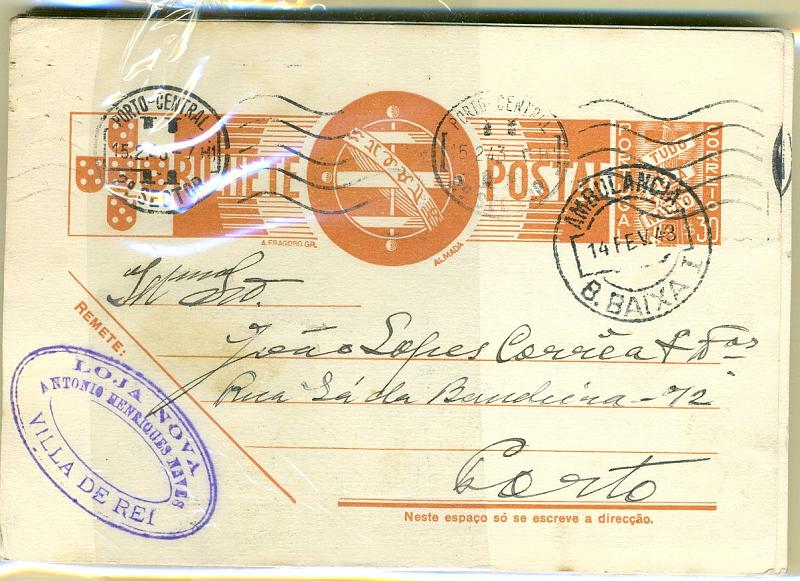 PORTO-CENTRAL
15.2.43
2º SECTOR
BILHETE POSTAL
PORTO-CENTRAL
PORTUGAL
CORREIO
TUDO
$30
AMBULANCIA
14 FEV. 43
B. BAIXA I
A. FRAGOSO. GR.
ALMADA
REMETE:
João Lopes Corrêa & Fos
Rua Sá da Bandeira - 72
Porto
LOJA NOVA
ANTONIO HENRIQUES NEVES
VILLA DE REI
Neste espaço só se escreve a direcção.